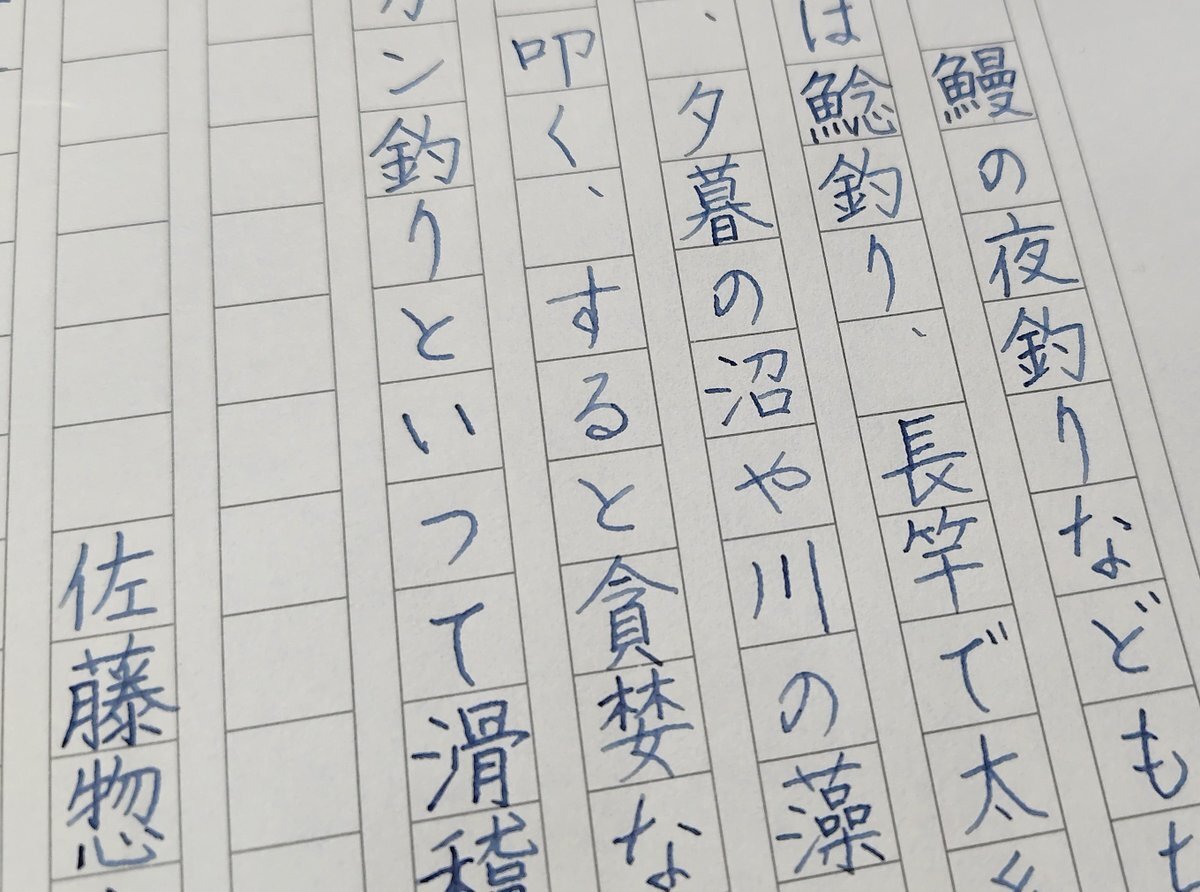 鰻の夜釣りなども
は鯰釣り、長竿で太
、夕暮の沼や川の藻
叩く、すると貪婪な
ン釣りといつて滑稽
佐藤惣